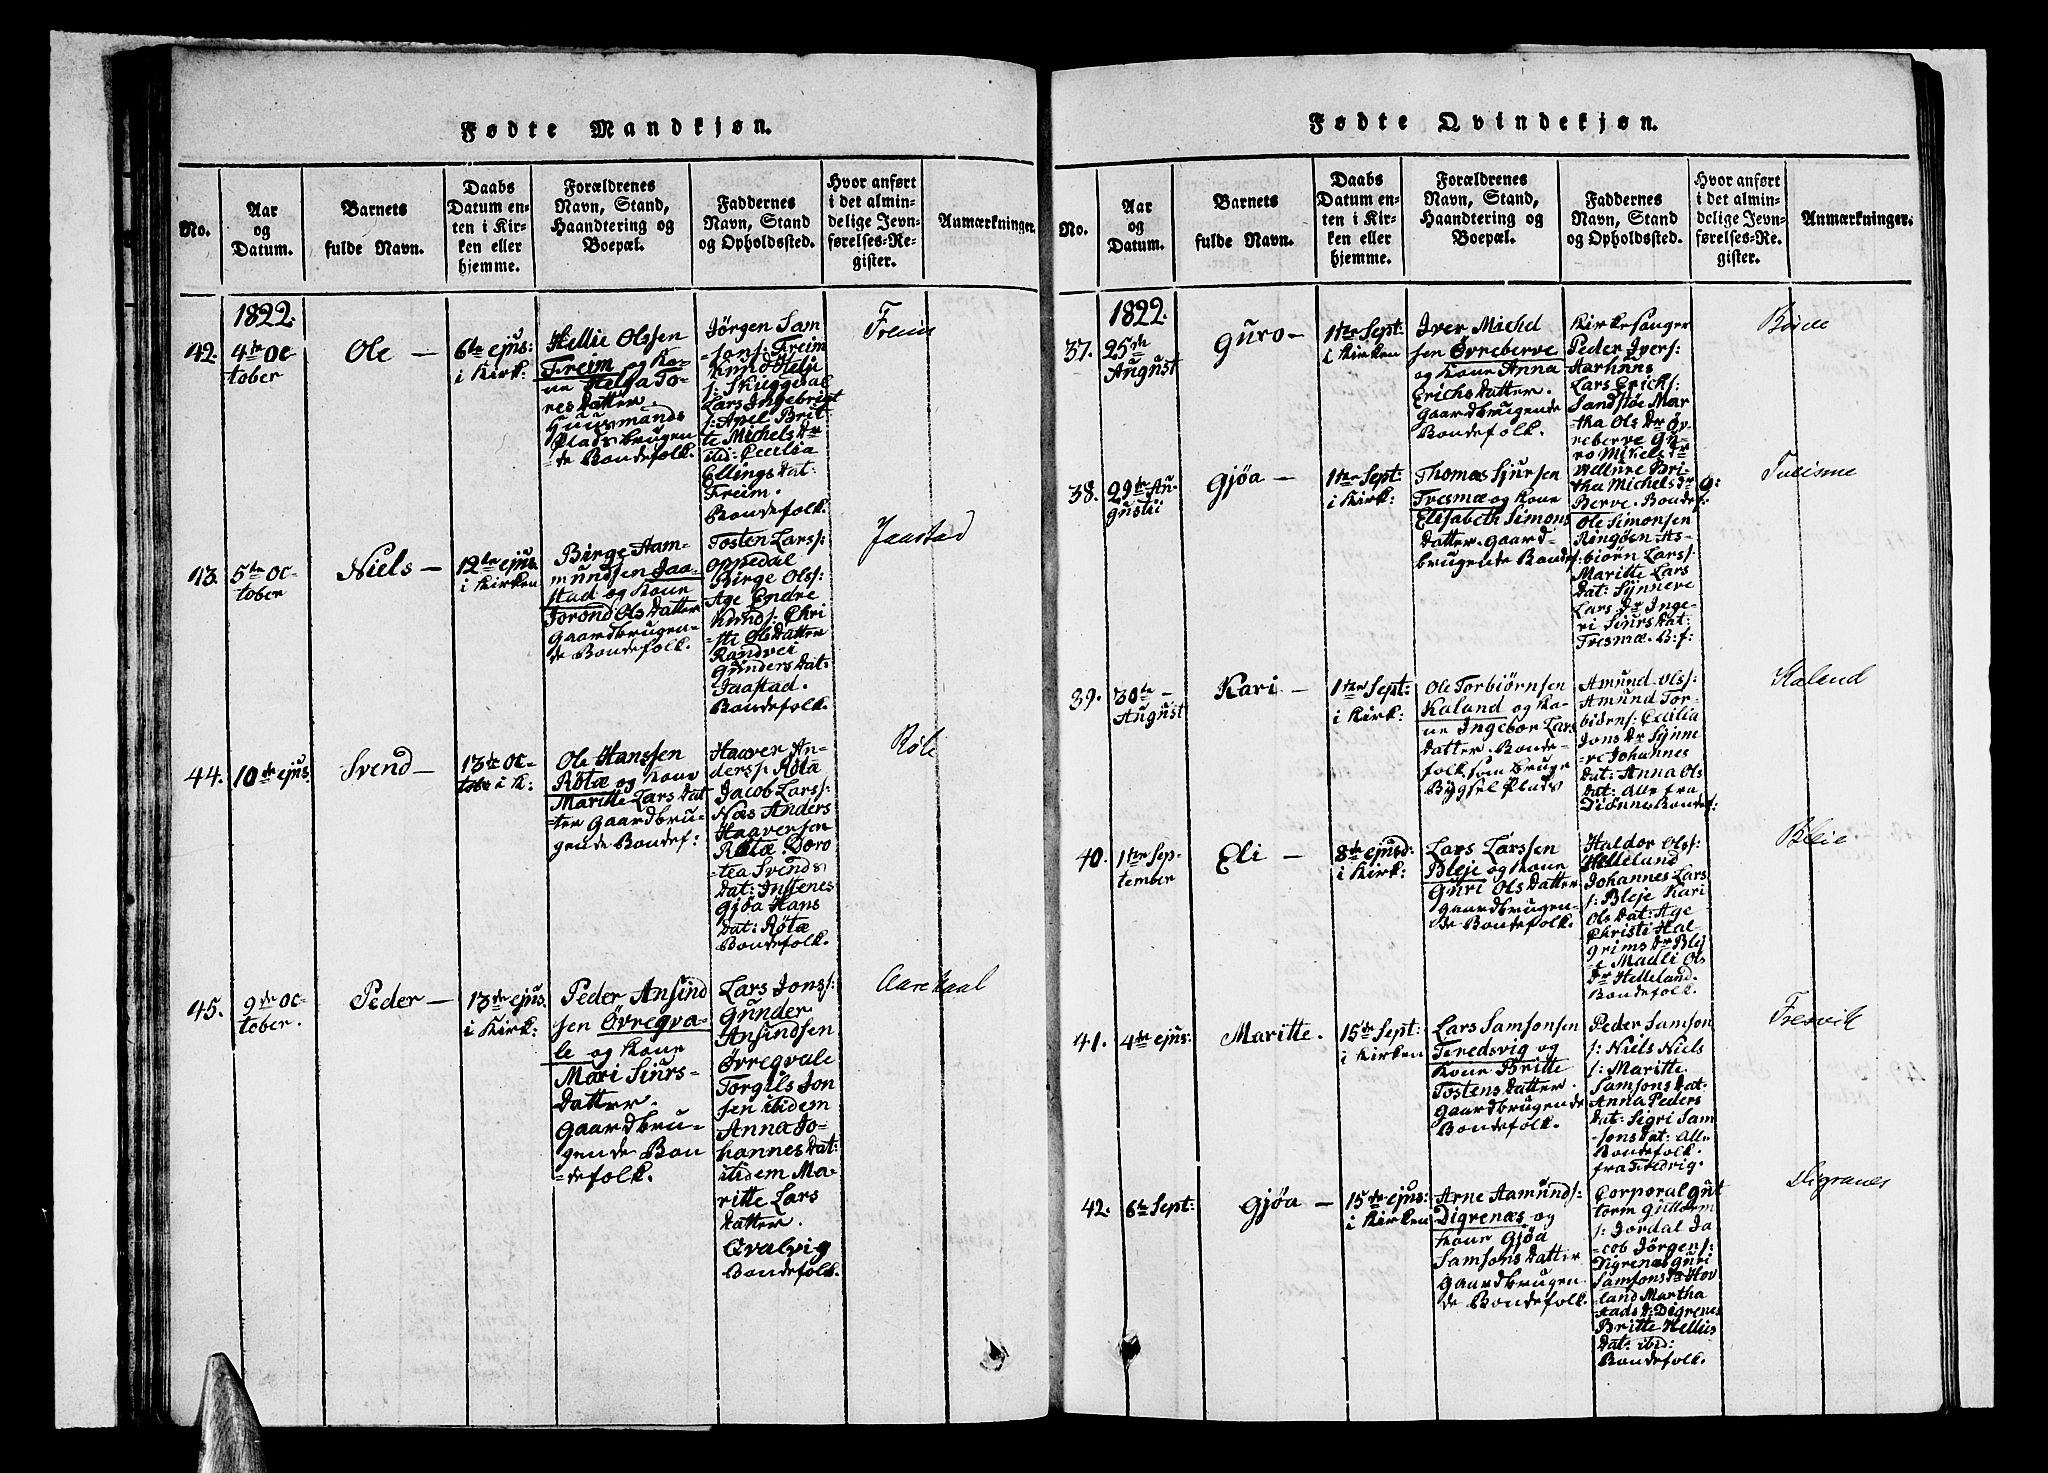 Fødte Mandkjøn.
No.
Aar
og
Datum.
Barnets
fulde Navn.
Daabs
Datum en-
ten i Kir-
ken eller
hjemme.
Forældrenes
Navn, Stand,
Haandtering og
Boepæl.
Faddernes
Navn, Stand
og Opholdssted.
Hvor anført
i det almin-
delige Jevn-
førelses-Re-
gister.
Anmærkninger.
1822.
42.
4de Oc
tober
Ole —
6te ejus:
i Kirk:
Hellie Olssen
Freim og Ko-
ne Helga To-
res Datter.
Huusmands
Plads brugen
=de Bondefolk.
Jørgen Sam
=sons: Freim
Knud Helje
s: Skuggedal
Lars Ingebrigt
s: Apel Brit-
te Michels Dr
ibid: Cecilia
Ellings Dat:
Freim.
Bondefolk.
Freim
43.
5te Oc-
tober
Niels —
12te ejus
i Kirken
Birge Aam-
mundsen Jaa-
stad og Kone
Torond Ols Datter
Gaardbrugen=
de Bondefolk.
Tosten Lars:
Oppedal
Birge Ols:
Age Endre
Knuds: Chri
=sti Ols Datter
Randvei
Gunders Dat:
Jaastad.
Bondefolk.
Jaastad
44.
10de ejus
Svend —
13de Oc-
tobr i K:
Ole Hanssen
Røtæ og Kone
Maritte Lars Dat
=ter Gaardbru-
gende Bondef:
Haaver An-
derss: Røtæ
Jacob Larss:
Næs Anders
Haaversen
Røtæ. Doro
=tea Svends
Dat: Instenes
Gjøa Hans
Dat: Røtæ
Bondefolk.
Røte
45.
9de Oc-
tober.
Peder —
13de ejus.
i Kirk:
Peder Ansind
sen Øvreqva-
le og Kone
Mari Siurs-
Datter.
Gaardbru-
gende Bon
=defolk.
Lars Jons:
Gunder
Ansindsen
Øvreqvale
Torgils Jon
sen ibidem
Anna Jo-
hannes Dat:
ibidem Ma-
ritte Lars
Datter.
Qvalvig
Bondefolk.
Fødte Qvindekjøn.
No.
Aar
og
Datum.
Barnets
fulde Navn.
Daabs
Datum en-
ten i Kir-
ken eller
hjemme.
Forældrenes
Navn, Stand,
Haandtering og
Boepæl.
Faddernes
Navn, Stand
og Opholdssted.
Hvor anført
i det almin-
delige Jevn-
førelses-Re-
gister.
Anmærkninger.
1822.
37.
25de
August
Guro —
1ter Sept:
i Kirken
Iver Michel
sen Øvreberve
og Kone Anna
Erichs Datter.
Gaardbrugende
Bondefolk.
Kirkesanger
Peder Ivers:
Aarhuus
Lars Erichs:
Sandstøe Mar
tha Ols Dr Øv
reberve Gu-
ro Mikels Dr
Bri-
tha Michels Dr Ø:
Berve. Bondef.
38.
29de Au-
gusti
Gjøa —
1ter Sept:
i Kirk:
Thomas Sjursen
Tresmæ og Kone
Elisabeth Simons
Datter. Gaard-
brugende Bondef:
Ole Simonsen
Ringøen As-
biørn Larss:
Maritte Lars
Dat: Synneve
Lars Dr Inge-
ri Siurs Dat:
Tresmæ. B:f:
39.
30te —
August
Kari —
1ter Sept:
i Kirk:
Ole Torbiørnsen
Kaland og Ko-
ne Ingebor Lars
Datter. Bonde-
folk som bruge
Bygsel Plads
Amund Olss:
Amund Tor-
biørns: Cecilia
Jons Dr Synne
=ve Johannes
Dat: Anna Ols
Dat: Alle fra
Bondef:
Kaland
40.
1ter Sep-
tember
Eli —
8de ejusd:
i Kirk:
Lars Larssen
Bleje og Kone
Guri Ols Datter
Gaardbrugen-
de Bondefolk.
Haldor Olss:
Helleland
Johannes Lars
s: Bleje Kari
Ols Dat: Age
Christi Hal
grims Dr Blej
=e Madli Ols
Dr Helleland.
Bondefolk.
Bleie
41.
4de ejus:
Maritte.
15de Sept:
i Kirken
Lars Samsonsen
Tredsvig og
Kone Britte
Tostens Datter.
Gaardbrugende
Bondefolk.
Peder Samson
s: Niels Niels
s: Maritte
Samsons Dat:
Anna Peders
Dat: Sigri Sam
=sons Dat: Alle
Bondefolk.
fra Tredsvig.
Tresvik
42.
6te Sept:
Gjøa —
15de ejus:
i Kirken
Arne Aamunds:
Digrenæs og
Kone Gjøa
Samsons Datter
Gaardbrugen
de Bondefolk.
Corporal Gut
torm Guttorm
s: Jordal Ja
=cob Jørgens:
Digrenæs Guri
Samsons Dr Hov
land Martha
Digrenes
Britte Hellies
Dat: ibid:
Bondefolk.
Digranes